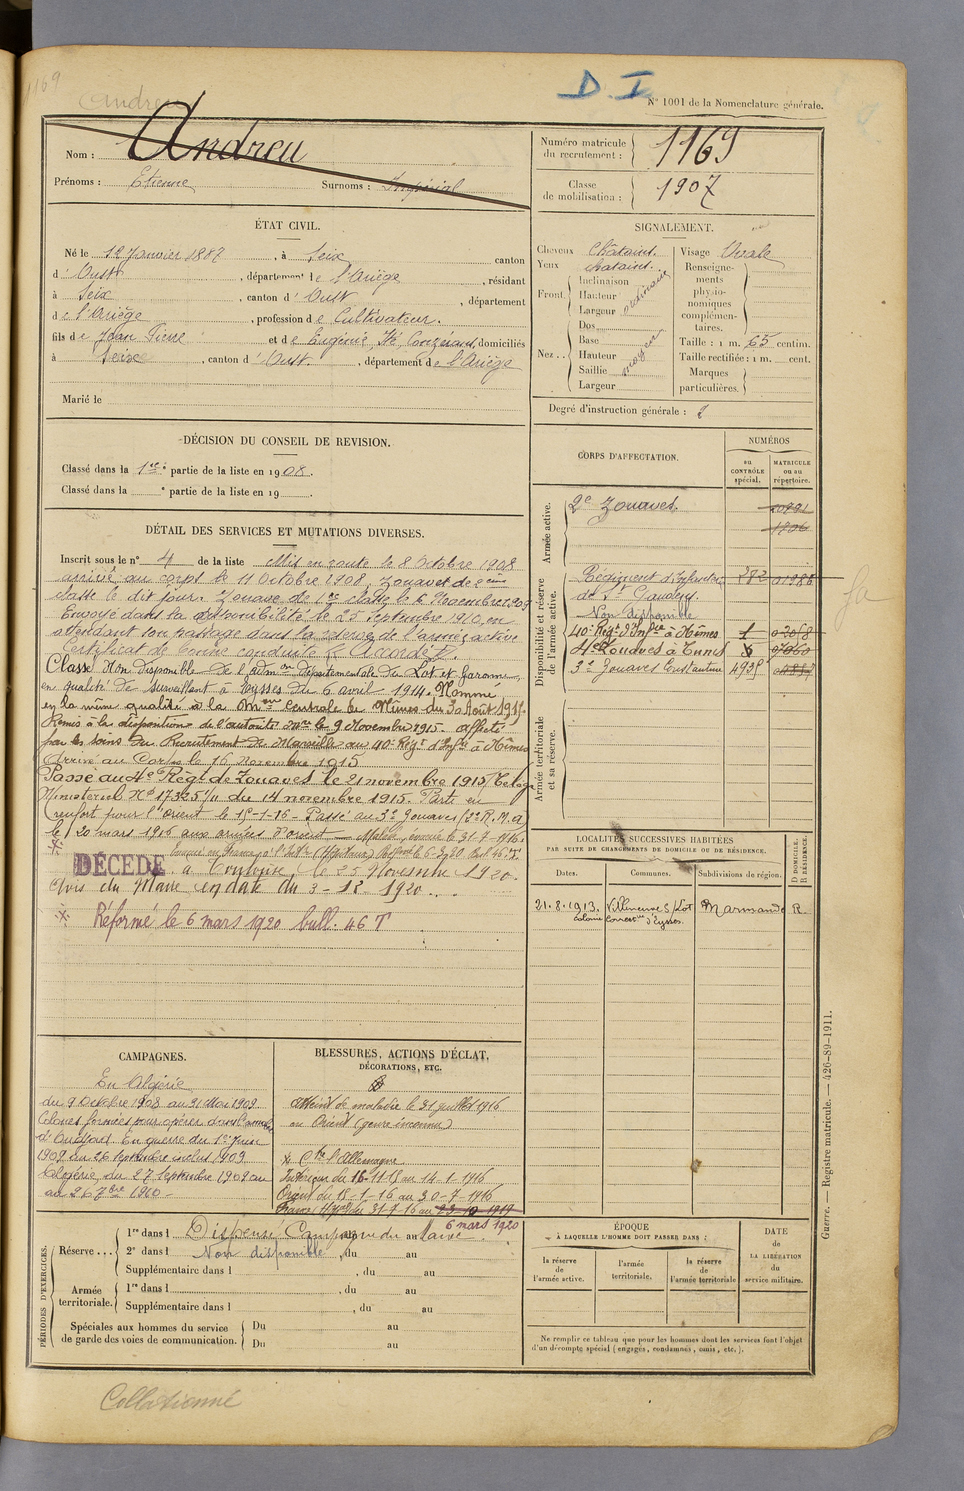 1169
Andreu
D. I.
N° 1001 de la Nomenclature générale.
Nom : Andreu
Prénoms : Etienne Surnoms : Impérial
Numéro matricule du recrutement : 1169
Classe de mobilisation : 1907
ÉTAT CIVIL.
Né le 12 Janvier 1887, à Seix canton
d'Oust, département de l'Ariège, résidant
à Seix, canton d'Oust, département
de l'Ariège, profession de Cultivateur.
fils de Jean Pierre et de Eugénie, Ste Conzérans, domiciliés
à Seix, canton d'Oust, département de l'Ariège
Marié le
SIGNALEMENT.
Cheveux châtains.
Yeux châtains.
Front. Inclinaison
Hauteur ordinaire
Largeur
Nez .. Dos
Base
Hauteur moyen
Saillie
Largeur
Visage Ovale
Renseignements physionomiques complémentaires.
Taille : 1 m. 65 centim.
Taille rectifiée : 1 m. cent.
Marques particulières.
Degré d'instruction générale : 2
DÉCISION DU CONSEIL DE REVISION.
Classé dans la 1re partie de la liste en 1908.
Classé dans la ° partie de la liste en 19 .
DÉTAIL DES SERVICES ET MUTATIONS DIVERSES.
Inscrit sous le n° 4 de la liste Mis en route le 8 Octobre 1908
arrivé au corps le 11 Octobre 1908, Zouave de 2ème
classe le dit jour. Zouave de 1re classe le 6 Novembre 1909
Envoyé dans la disponibilité le 25 Septembre 1910, en
attendant son passage dans la réserve de l'armée active
Certificat de bonne conduite le "Accordé".
Classé Non disponible de l'adm on départementale du Lot et Garonne,
en qualité de surveillant à Eysses du 6 avril 1914. Nommé
en la même qualité à la Mon Centrale de Nîmes du 30 Août 1915.
Remis à la disposition de l'autorité mre le 9 Novembre 1915. Affecté
par les soins du Recrutement de Marseille au 40e Régt d'Infie à Nîmes
Arrivé au Corps le 16 novembre 1915
Passé au 4e Régt de Zouaves le 21 novembre 1915
Ministériel N° 17325 1/11 du 14 novembre 1915. Parti en
renfort pour l'Orient le 15-1-16 - Passé au 3e Zouaves (2e R.M.A)
le 20 mars 1916 aux armées d'Orient - Malade, évacué le 31-7-1916.
DÉCÉDÉ à Toulouse, le 25 Novembre 1920.
Avis du Maire en date du 3-12 1920.
Réformé le 6 mars 1920 bull. 46 T
CORPS D'AFFECTATION.
NUMÉROS
au CONTRÔLE spécial.
MATRICULE ou au répertoire.
Armée active.
2e Zouaves.
1706
Disponibilité et réserve de l'armée active.
Régiment d'Infanterie 282
de St Gaudens.
Non disponible
40e Régt d'Infie à Nîmes 1
4e Zouaves à Tunis
3e Zouaves Constantine
Armée territoriale et sa réserve.
LOCALITÉS SUCCESSIVES HABITÉES
PAR SUITE DE CHANGEMENTS DE DOMICILE OU DE RÉSIDENCE.
Dates. Communes. Subdivisions de région. D DOMICILE. R RÉSIDENCE.
21.8.1913. Villeneuve s/Lot Marmande R.
Colonie Correctlle d'Eysses.
CAMPAGNES.
En Algérie
du 9 Octobre 1908 au 31 Mai 1909
Colonnes formées pour opérer dans
En guerre du 1er Juin
1909 au 26 Septembre inclus 1909
Algérie, du 27 Septembre 1909 au
au 26 7bre 1910 -
BLESSURES, ACTIONS D'ÉCLAT,
DÉCORATIONS, ETC.
Atteint de maladie le 31 juillet 1916
en Orient (genre inconnu)
Cte l'Allemagne
Intérieur du 16-11-15 au 14-1-1916
Orient du 15-1-16 au 30-7-1916
France du 31-7-16 au 23-10-1919
6 mars 1920
PÉRIODES D'EXERCICES.
Réserve ... 1re dans l Dispensé Campagne du Maroc.
2e dans l Non disponible, du au
Supplémentaire dans l , du au
Armée territoriale. 1re dans l , du au
Supplémentaire dans l , du au
Spéciales aux hommes du service de garde des voies de communication. Du au
Du au
ÉPOQUE
À LAQUELLE L'HOMME DOIT PASSER DANS :
la réserve de l'armée active.
l'armée territoriale.
la réserve de l'armée territoriale
DATE de LA LIBÉRATION du service militaire.
Ne remplir ce tableau que pour les hommes dont les services font l'objet
d'un décompte spécial (engagés, condamnés, omis, etc.).
Guerre. — Registre matricule. — 426-89-1911.
Collationné